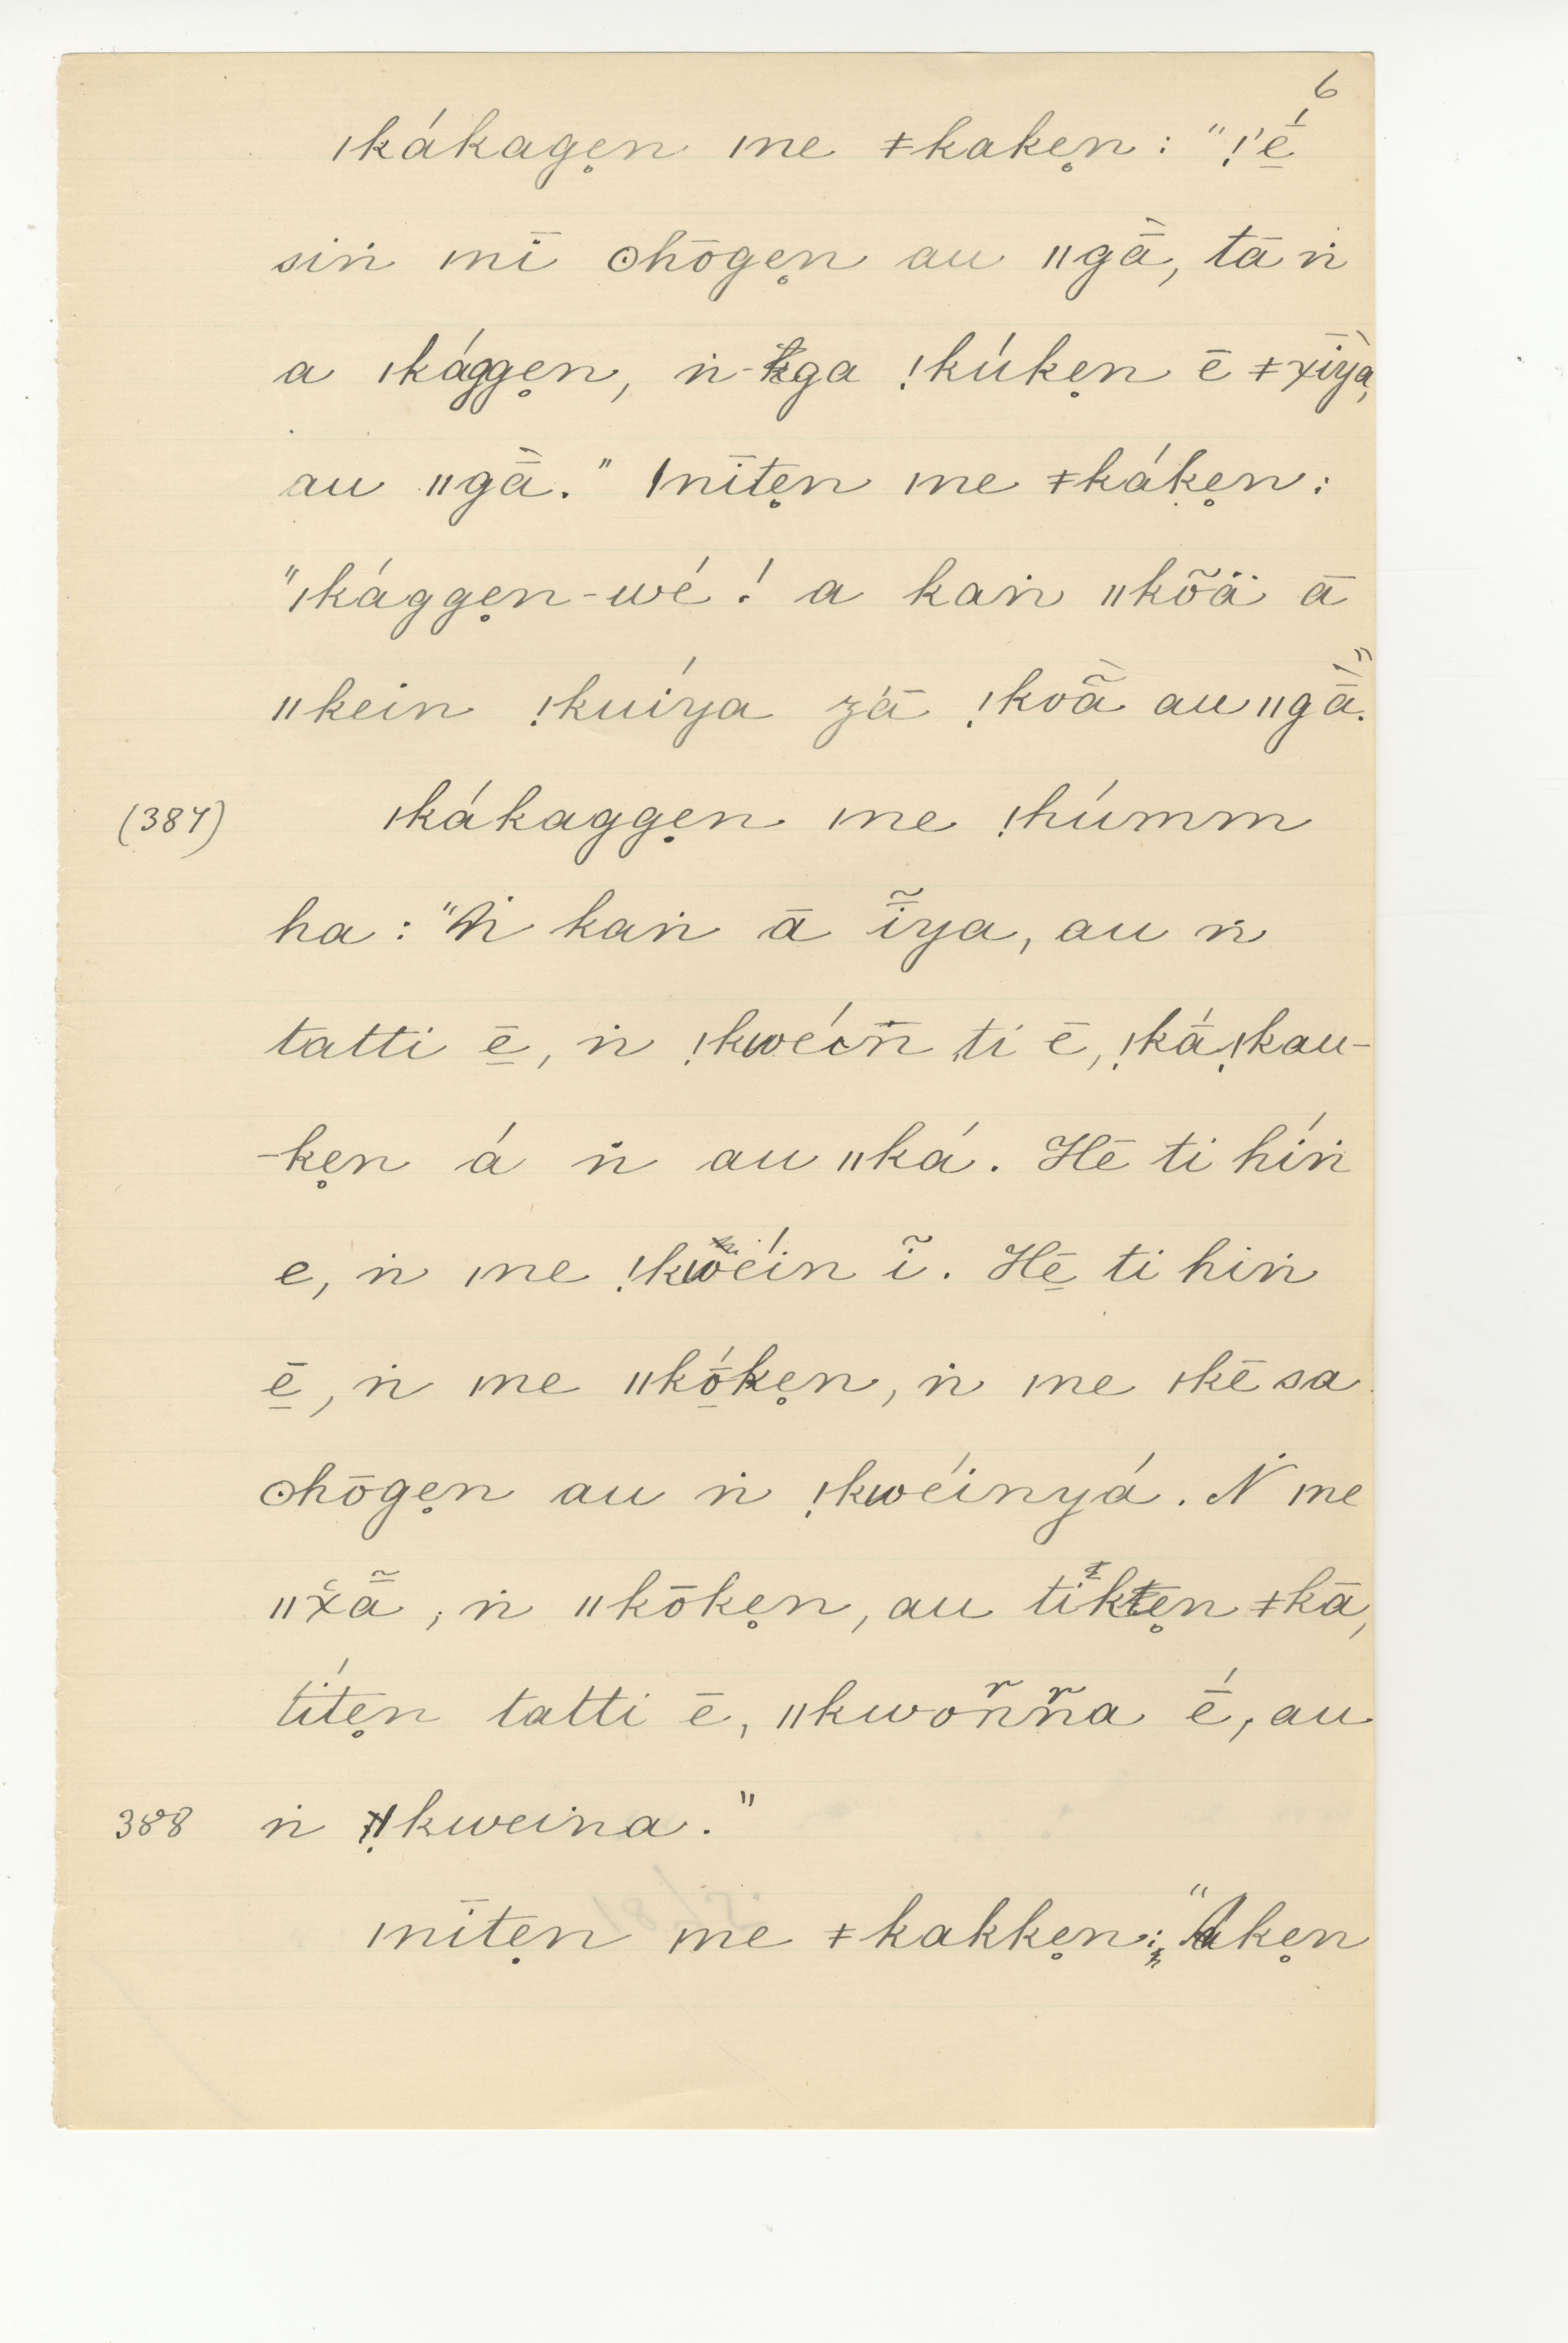 6
ǀkákagen̥ ǀne ǂkaken̥ : "ǃ'é̱̄
siṅ ǀnī ʘhōgen̥ au ǁgā̀, tā ṅ
a ǀkággen̥, ṅ-ga ǃkúken̥ ē ǂxīyà,
au ǁgā̀." ǀnīten̥ ǀne ǂkáken̥ :
"ǀkággen̥-wé ! a kaṅ ǁkõä ā
ǁkein ǃkuíya zā́ ǃkoā̃̀ au ǁgā̀."
(387) ǀkákaggen̥ ǀne ǃhúmm
ha : "Ṅ kaṅ ā ī̃ya, au ṅ
tatti ē̱, ṅ ǃkwéiñ ti ē, ǃkā́ǃkau-
-ken̥ á ṅ au ǁká. Hē ti híṅ
e, ṅ ǀne ǃkwéin ĩ. Hē̱ ti hiṅ
ē̱, ṅ ǀne ǁkṓ̱ken̥, ṅ ǀne ǀkē sa
ʘhōgen̥ au ṅ ǃkwéinyá. Ṅ ǀne
ǁxā̃, ṅ ǁkōken̥, au tikten̥ ǂkā,
títen̥ tatti ē, ǁkwoňňa ḗ, au
388 ṅ ǃkweina."
ǀnīten̥ ǀne ǂkakken̥ : "Aken̥